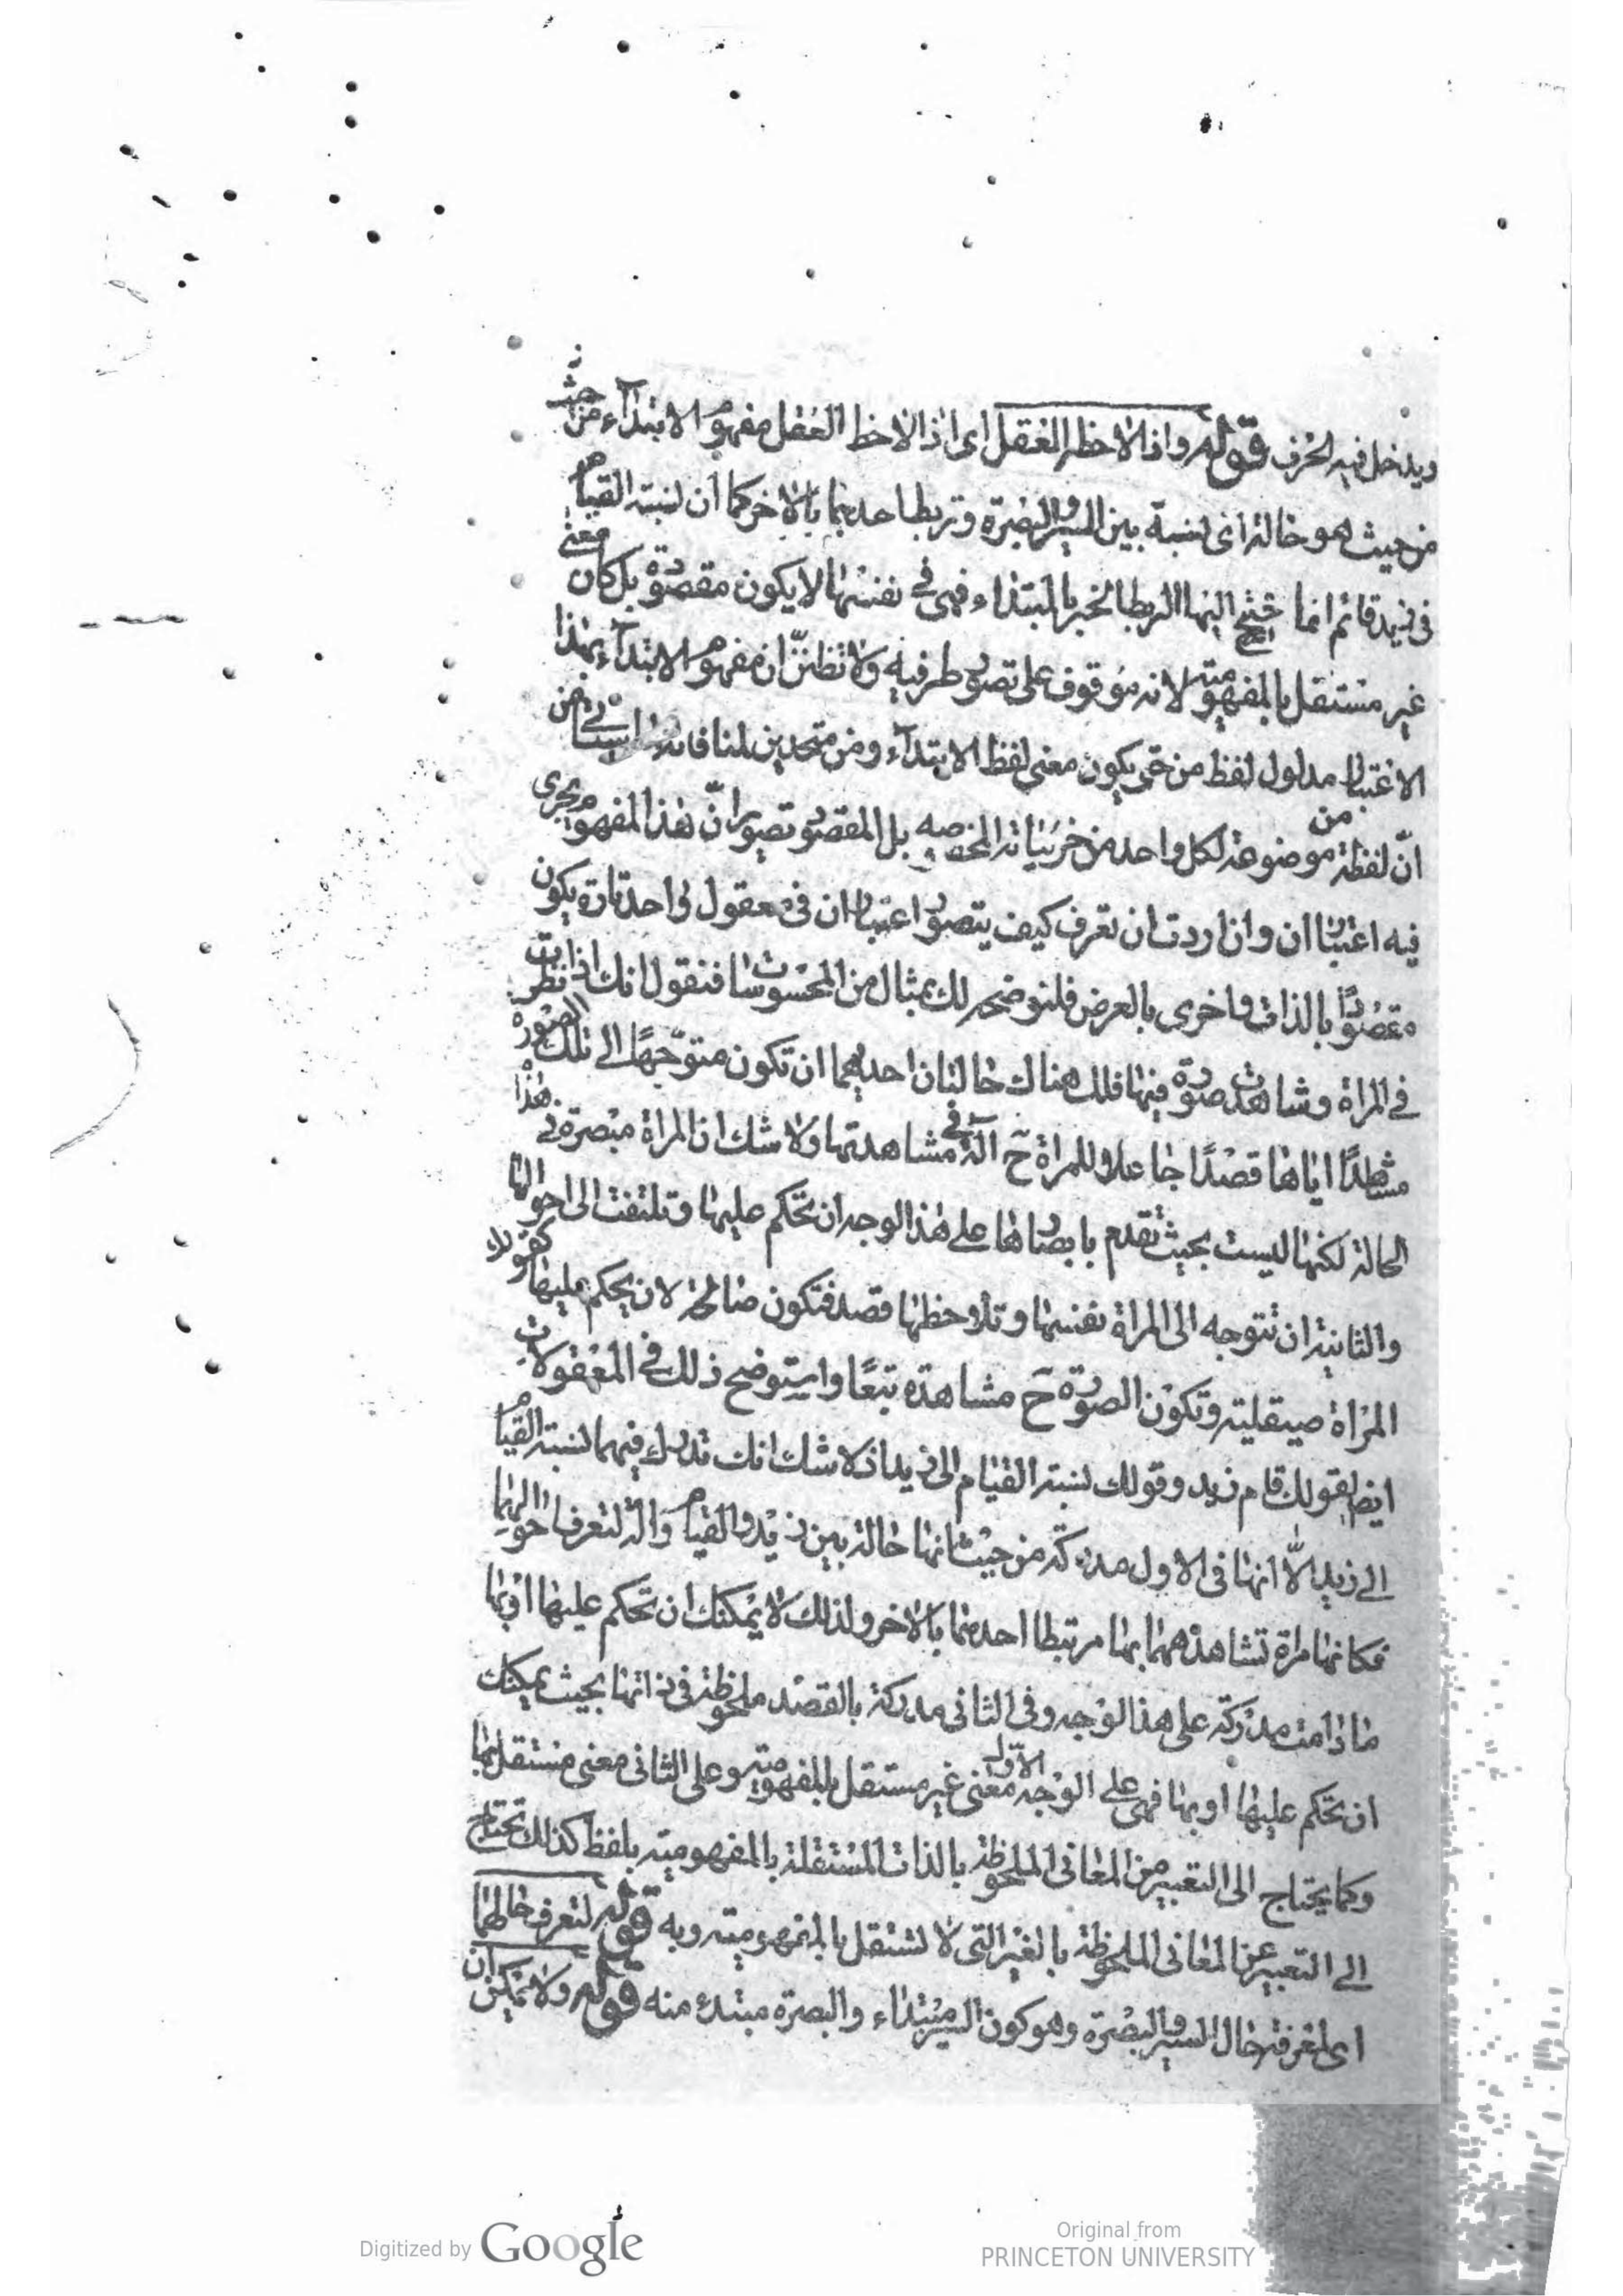 ويدخل فيه الحرف قوله واذا لاحظه العقل اى اذا لاحظ العقل مفهوم الابتداء من حيث
من حيث هو حالة اى نسبة بين السير والبصرة وتربط احدهما بالاخر كما ان نسبة القيام
فى زيد قائم انما احتيج اليها لربط الخبر بالمبتداء فهى فى نفسها لا يكون مقصودة بل كان معنى
غير مستقل بالمفهومية لانه موقوف على تصور طرفيه ولا تظنن ان مفهوم الابتداء بهذا
الاعتبار مدلول لفظ من حتى يكون معنى لفظ الابتداء ومن متحدين
ان لفظة من موضوعة لكل واحد من جزئياته المخصصه بل المقصود تصوير ان هذا المفهوم يجرى
فيه اعتباران وان اردت ان تعرف كيف يتصور اعتباران فى معقول واحد تارة يكون
مقصودًا بالذات واخرى بالعرض فلنوضحه لك بمثال من المحسوسات فنقول انك اذا نظرت
فى المراة وشاهدت صورة فيها فلك هناك حالتان احديهما ان تكون متوجّهًا الى تلك الصورة
مشاهدًا اياها قصدًا جاعلا للمراة ح آلة فى مشاهدتها ولا شك ان المراة مبصرة فى هذا
الحالة لكنها ليست بحيث تقدم بابصارها على هذا الوجه ان تحكم عليها وتلتفت الى احوالها
والثانية ان تتوجه الى المراة نفسها وتلاحظها قصد فتكون صالحة لان يحكم عليها كقولك
المراة صيقلية وتكون الصورة ح مشاهدة تبعًا واستوضح ذلك فى المعقولات
ايض بقولك قام زيد وقولك نسبة القيام الى زيد اذ لا شك انك تدرك فيهما نسبة القيام
الى زيد الّا انها فى الاول مدركة من حيث انها حالة بين زيد والقيام وآلة لتعرف احوالهما
فكانها مراة تشاهدهما بها مرتبطا احدهما بالاخر ولذلك لا يمكنك ان تحكم عليها او بها
ما دامت مدركة على هذا الوجه وفى الثانى مدركة بالقصد ملحوظة فى ذاتها بحيث يمكنك
ان تحكم عليها او بها فهى على الوجه الاوّل معنى غير مستقل بالمفهومية وعلى الثانى معنى مستقل بها
وكما يحتاج الى التعبير من المعانى الملحوظة بالذات المستقلة بالمفهومية بلفظ كذلك تحتاج
الى التعبير عن المعانى الملحوظة بالغير التى لا تستقل بالمفهومية وبه قوله لتعرف حالهما
اى لمعرفة حال السير والبصرة وهو كون السير مبتداء والبصرة مبتدء منه قوله ولا يمكن ان
Digitized by Google
Original from
PRINCETON UNIVERSITY